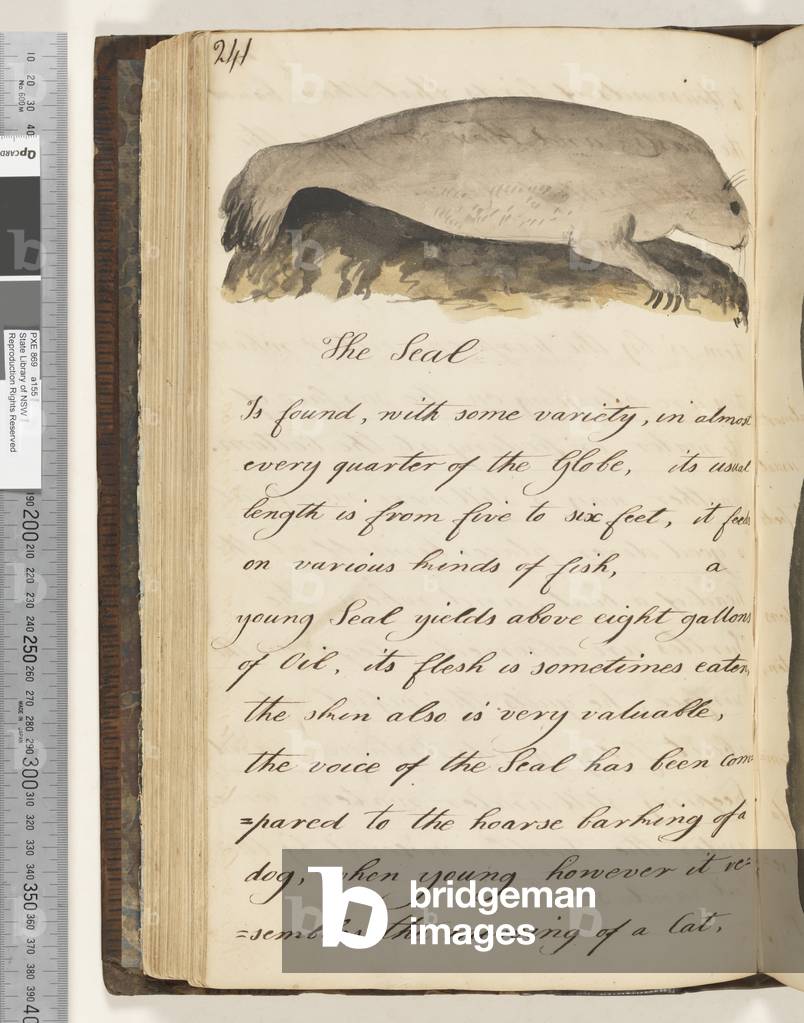 241
The Seal
Is found, with some variety, in almost
every quarter of the Globe, its usual
length is from five to six feet, it feeds
on various kinds of fish, a
young Seal yields above eight gallons
of Oil, its flesh is sometimes eaten,
the skin also is very valuable,
the voice of the Seal has been com=
=pared to the hoarse barking of a
dog, when young however it re=
=sembles the mewing of a Cat.
PXE 869 a155
State Library of NSW
Reproduction Rights Reserved
No. 600M
MADE IN JAPAN
10 20 30 40
190 200 210 220 230 240 250 260 270 280 290 300 310 320 330 340 350 360 370 380 390
b bridgeman
images